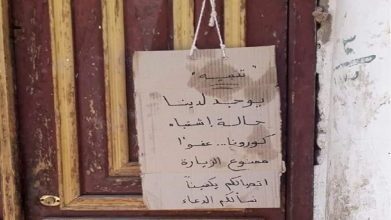 "تنبيه"
يوجد لدينا
حالة إشتباه
كورونا.. عفوًا
ممنوع الزيارة
اتصالكم يكفينا
نسألكم الدعاء